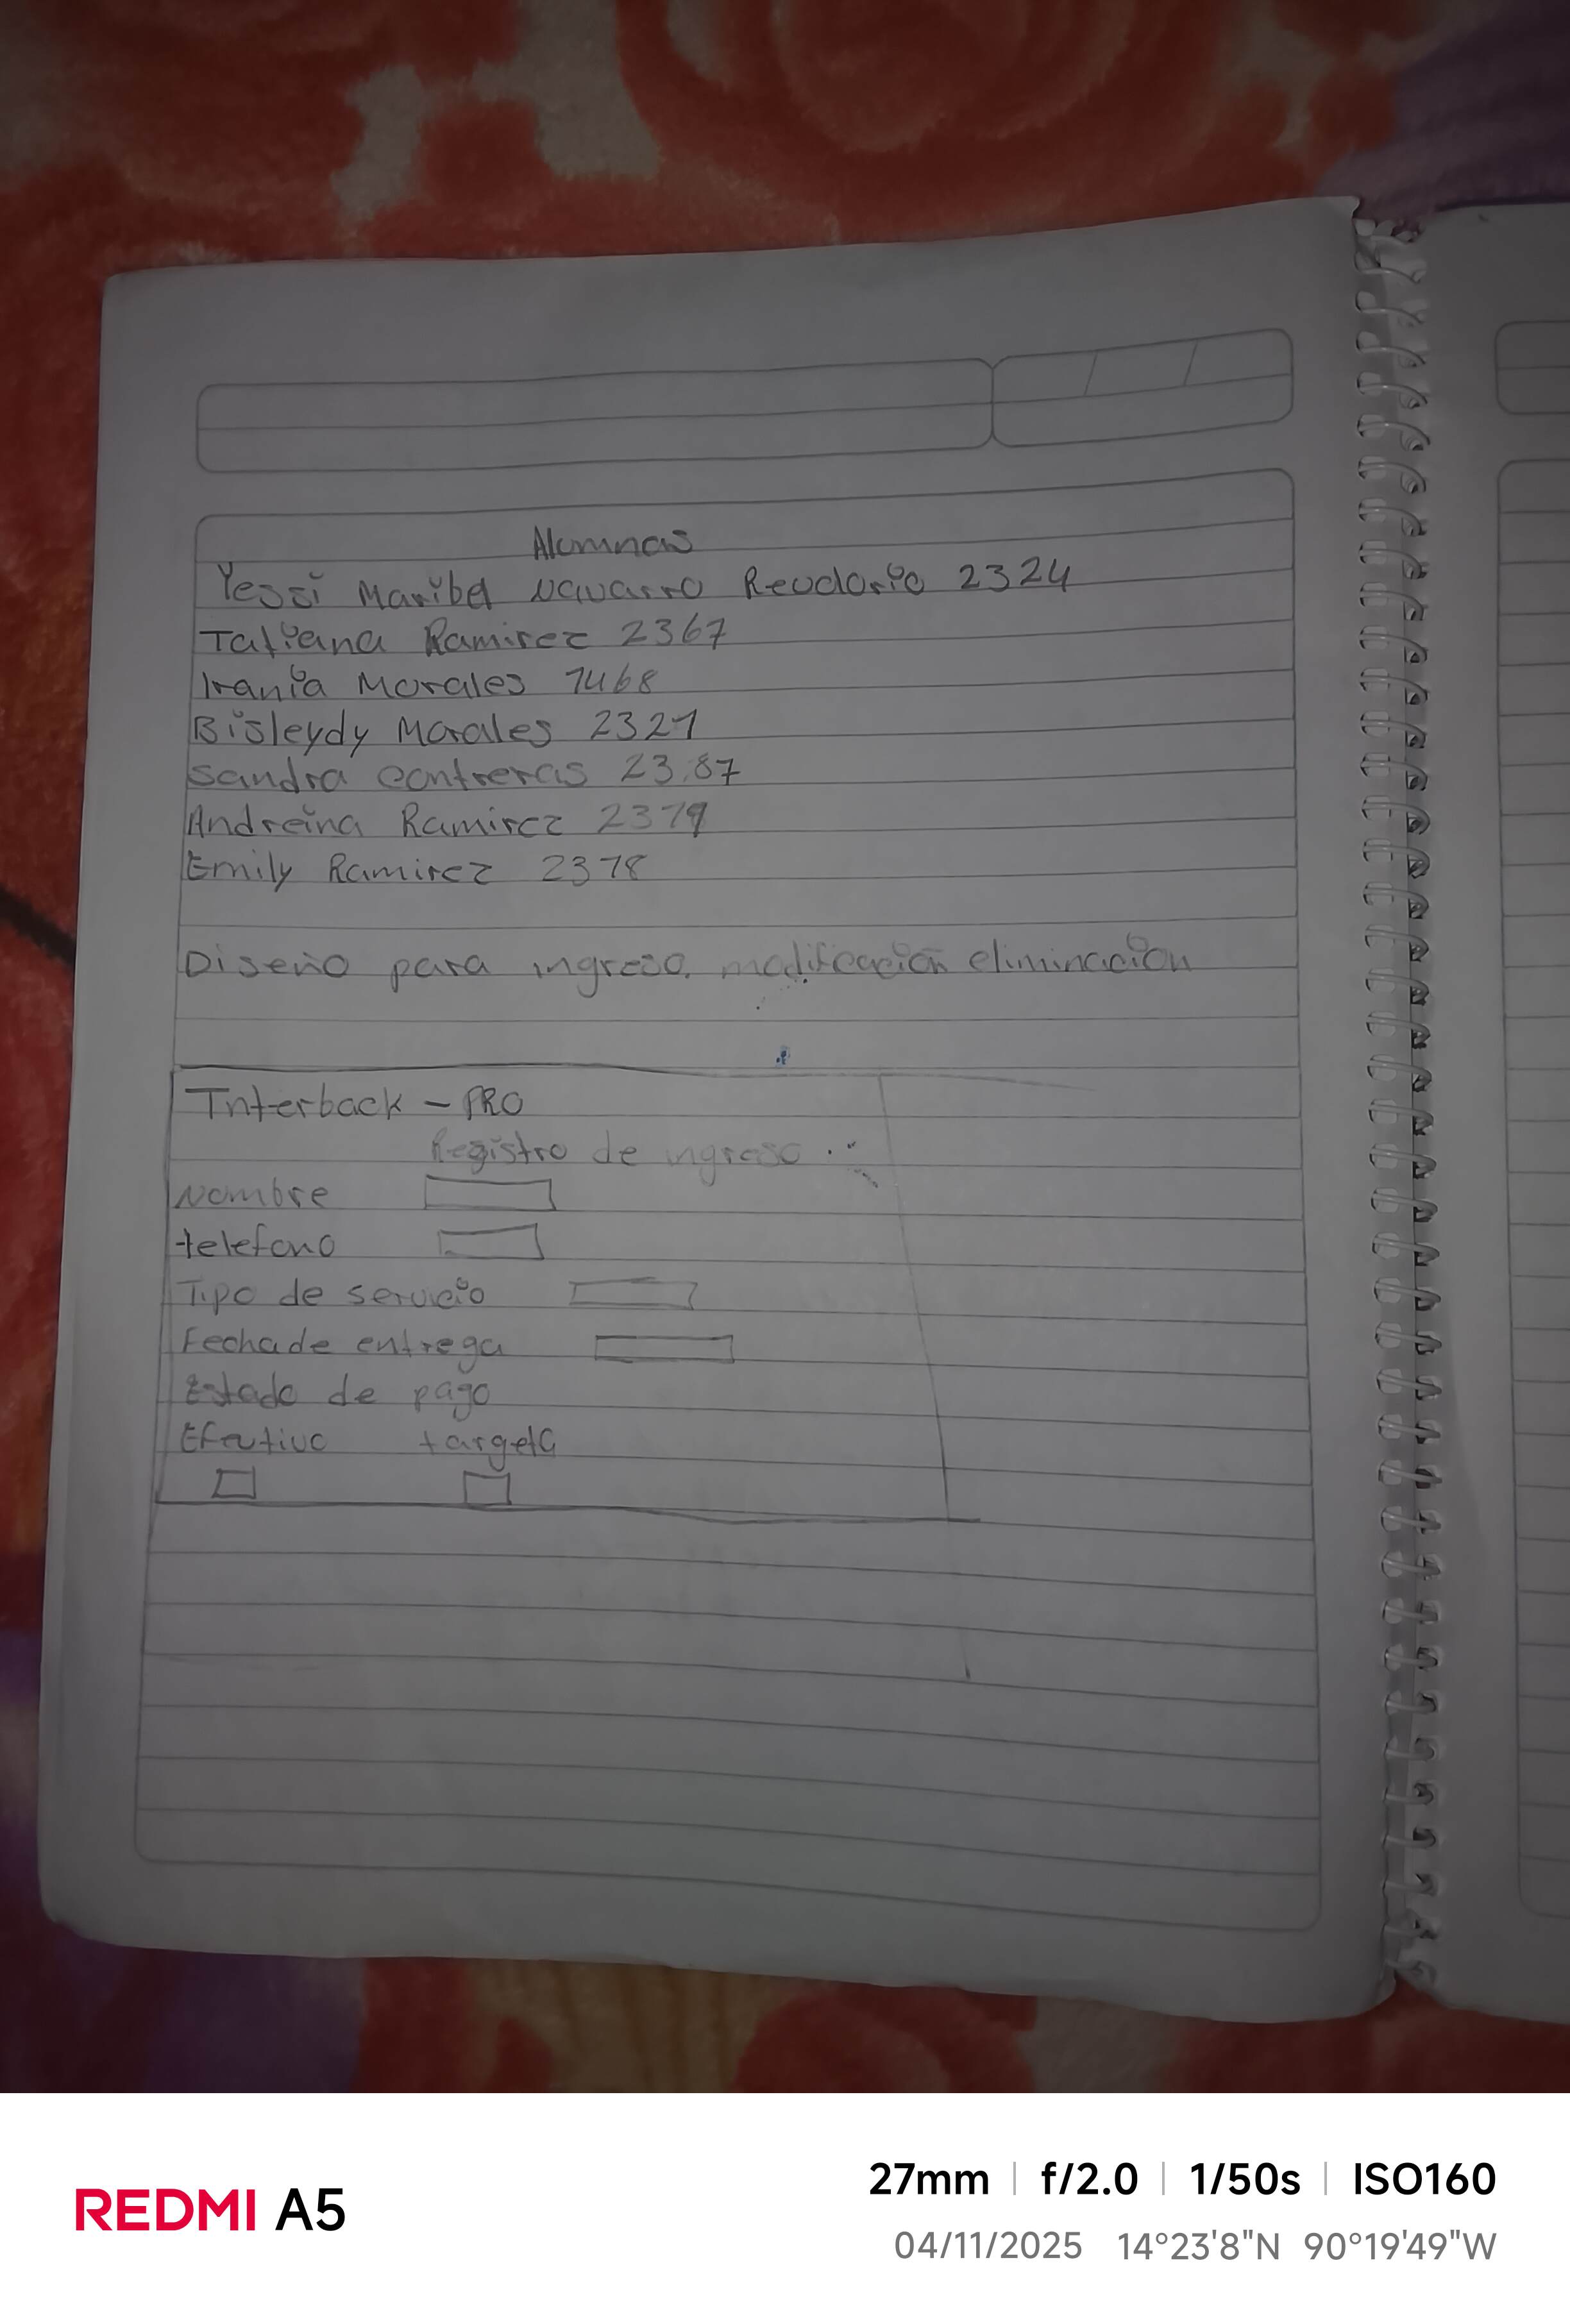 Alumnas
Yessi Maribel Navarro Reudorio 2324
Tatiana Ramirez 2367
Irania Morales 1468
Bisleydy Morales 2321
Sandra Contreras 23.87
Andreina Ramirez 2379
Emily Ramirez 2378
Diseño para ingreso. modificación eliminación
Interback - PRO
Registro de ingreso
Nombre
telefono
Tipo de servicio
Fecha de entrega
Estado de pago
Efectivo targeta
REDMI A5
27mm | f/2.0 | 1/50s | ISO160
04/11/2025 14°23'8"N 90°19'49"W